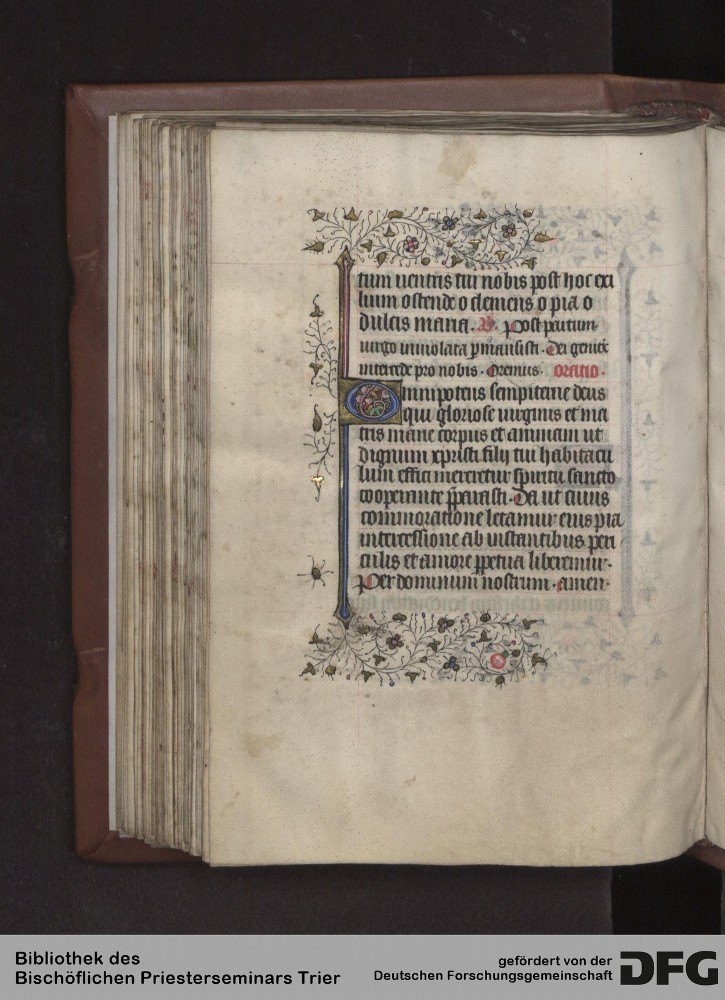 tum uentris tui nobis post hoc exi
lium ostende o clemens o pia o
dulcis maria. V. Post partum
uirgo inuiolata pmansisti. Dei genitx
intercede pro nobis. Oremus. Oratio.
Omnipotens sempiterne deus
qui gloriose uirginis et ma
tris marie corpus et animam ut
dignum xpristi filij tui habitacu
lum effici mereretur spiritu sancto
cooperante pparasti. Da ut cuius
commoratione letamur eius pia
intercessione ab instantibus peri
culis et a morte ppetua liberemur.
Per dominum nostrum. amen.
Bibliothek des
Bischöflichen Priesterseminars Trier
gefördert von der
Deutschen Forschungsgemeinschaft
DFG